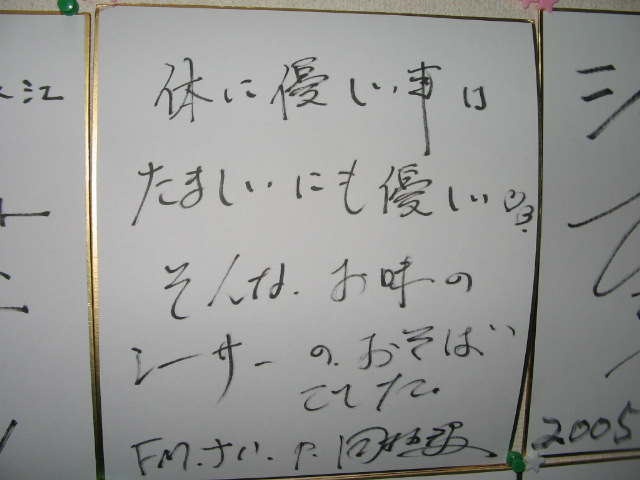 体に優しい事は
たましいにも優しい
そんな、お味の
シーサーのおそば
でした。
FM.さい
江
2005